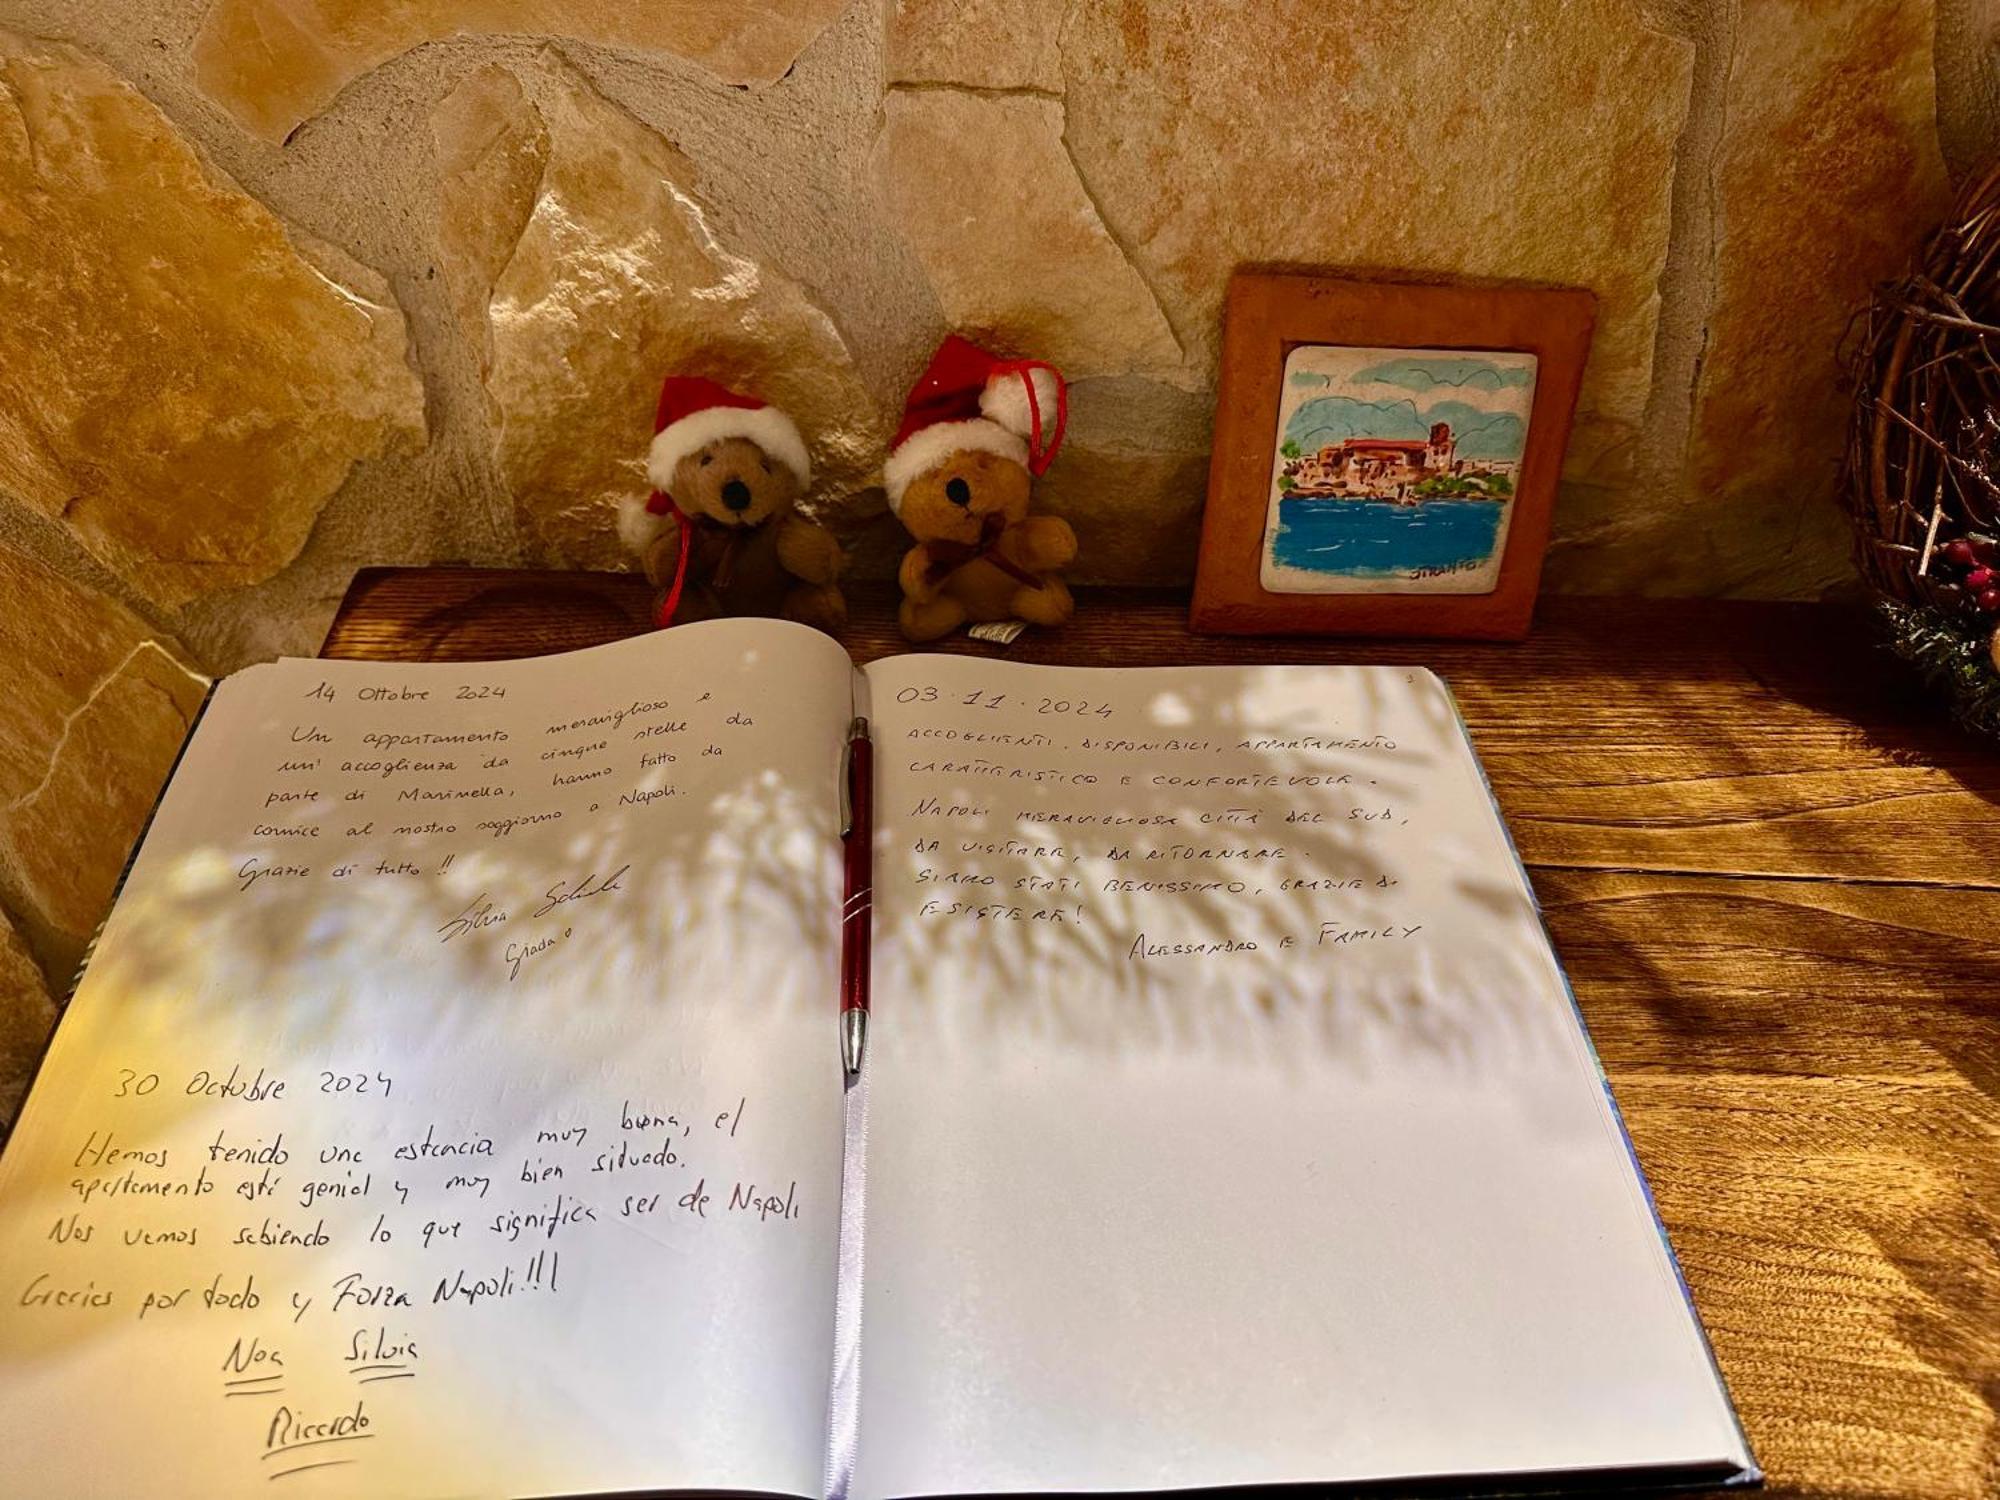 14 Ottobre 2024
Un appartamento meraviglioso e
un' accoglienza da cinque stelle da
parte di Marinella, hanno fatto da
cornice al nostro soggiorno a Napoli.
Grazie di tutto !!
Silvia
Giada
30 Octubre 2024
Hemos tenido una estancia muy buena, el
apartamento está genial y muy bien situado.
Nos vamos sabiendo lo que significa ser de Napoli
Gracias por todo y Forza Napoli!!!
Noa Silvia
Ricardo
03.11.2024
ACCOGLIENTI, DISPONIBILI, APPARTAMENTO
CARATTERISTICO E CONFORTEVOLE.
NAPOLI MERAVIGLIOSA CITTÀ DEL SUD,
DA VISITARE, DA RITORNARE.
SIAMO STATI BENISSIMO, GRAZIE DI
ESISTERE!
ALESSANDRO E FAMILY
OTRANTO